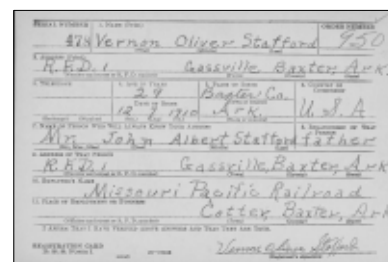 SERIAL NUMBER 1. NAME (Print) ORDER NUMBER
478 Vernon Oliver Stafford 950
2. ADDRESS (Print)
R.F.D. 1 Gassville Baxter, Ark.
3. TELEPHONE 4. AGE IN YEARS 5. PLACE OF BIRTH 6. COUNTRY OF CITIZENSHIP
29 Baxter Co.
DATE OF BIRTH
1910 Ark. U.S.A
7. NAME OF PERSON WHO WILL ALWAYS KNOW YOUR ADDRESS 8. RELATIONSHIP OF THAT PERSON
Mr. John Albert Stafford father
9. ADDRESS OF THAT PERSON
R.F.D. 1 Gassville, Baxter, Ark
10. EMPLOYER'S NAME
Missouri Pacific Railroad
11. PLACE OF EMPLOYMENT OR BUSINESS
Cotter, Baxter, Ark
I AFFIRM THAT I HAVE VERIFIED ABOVE ANSWERS AND THAT THEY ARE TRUE.
REGISTRATION CARD
D. S. S. Form 1
Vernon Oliver Stafford